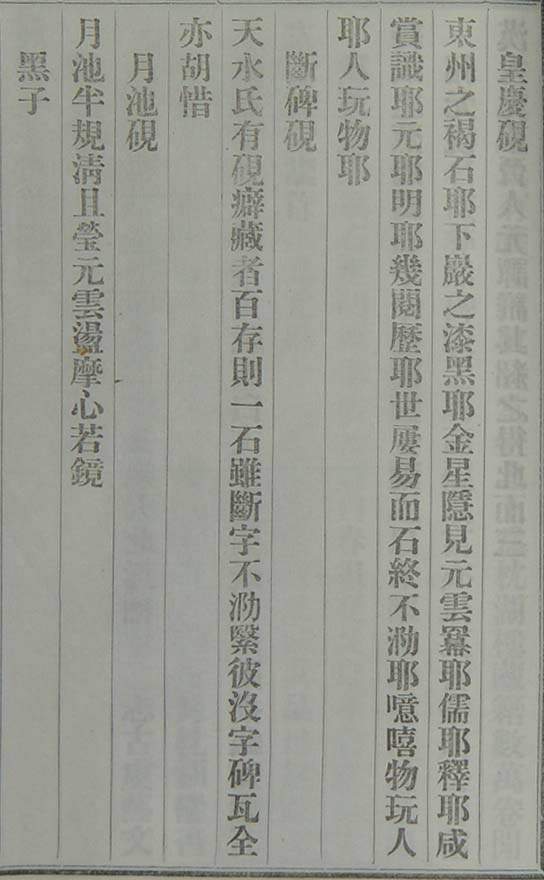 皇慶硯
東州之褐石耶下巖之漆黑耶金星隱見元雲羃耶儒耶釋耶咸
賞識耶元耶明耶幾閱歷耶世屢易而石終不泐耶噫嘻物玩人
耶人玩物耶
斷碑硯
天水氏有硯癖藏者百存則一石雖斷字不泐繄彼沒字碑瓦全
亦胡惜
月池硯
月池半規淸且瑩元雲盪摩心若鏡
黑子